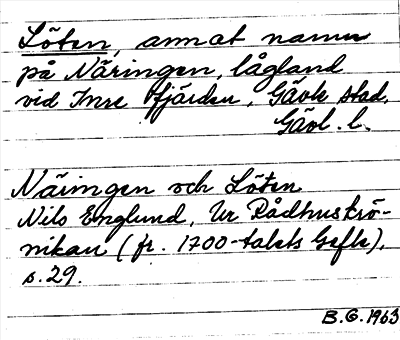 Löten, annat namn
på Näringen, lågland
vid Inre fjärden, Gävle stad.
Gävl. l.
Näringen och Löten
Nils Englund, Ur Rådhuskrö-
nikan (fr. 1700-talets Gefle),
s. 29.
B.G. 1963